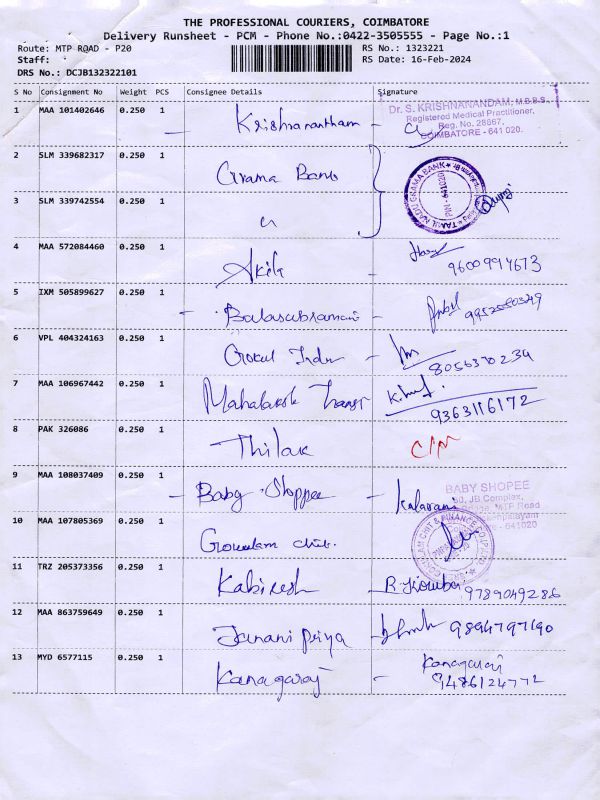 THE PROFESSIONAL COURIERS, COIMBATORE
Delivery Runsheet - PCM - Phone No.:0422-3505555 - Page No.:1
Route: MTP ROAD - P20 RS No.: 1323221
Staff: RS Date: 16-Feb-2024
DRS No.: DCJB132322101
S No Consignment No Weight PCS Consignee Details Signature
1 MAA 101402646 0.250 1 Krishnanantham -
Dr. S. KRISHNANANDAM, M.B.B.S.,
Registered Medical Practitioner,
Reg. No. 28667,
COIMBATORE - 641 020.
2 SLM 339682317 0.250 1 Grama Bank
TAMIL NADU GRAMA BANK
3 SLM 339742554 0.250 1 "
4 MAA 572084460 0.250 1 Akila -
5 IXM 505899627 0.250 1 - Balasubramani -
6 VPL 404324163 0.250 1 Gokul Indu - 8056370234
7 MAA 106967442 0.250 1 Mahalaksh Transp 9363116172
8 PAK 326086 0.250 1 Thilak
9 MAA 108037409 0.250 1 - Baby Shoppee - Kalavani
BABY SHOPEE
JB Complex,
MTP Road
641020
10 MAA 107805369 0.250 1 Gokulam chit.
GOKULAM CHIT & FINANCE CO. P LTD
11 TRZ 205373356 0.250 1 Kabiresh 9789049286
12 MAA 863759649 0.250 1 Janani priya 9894797190
13 MYD 6577115 0.250 1 Kanagaraj - Kanagaraj
9486124772